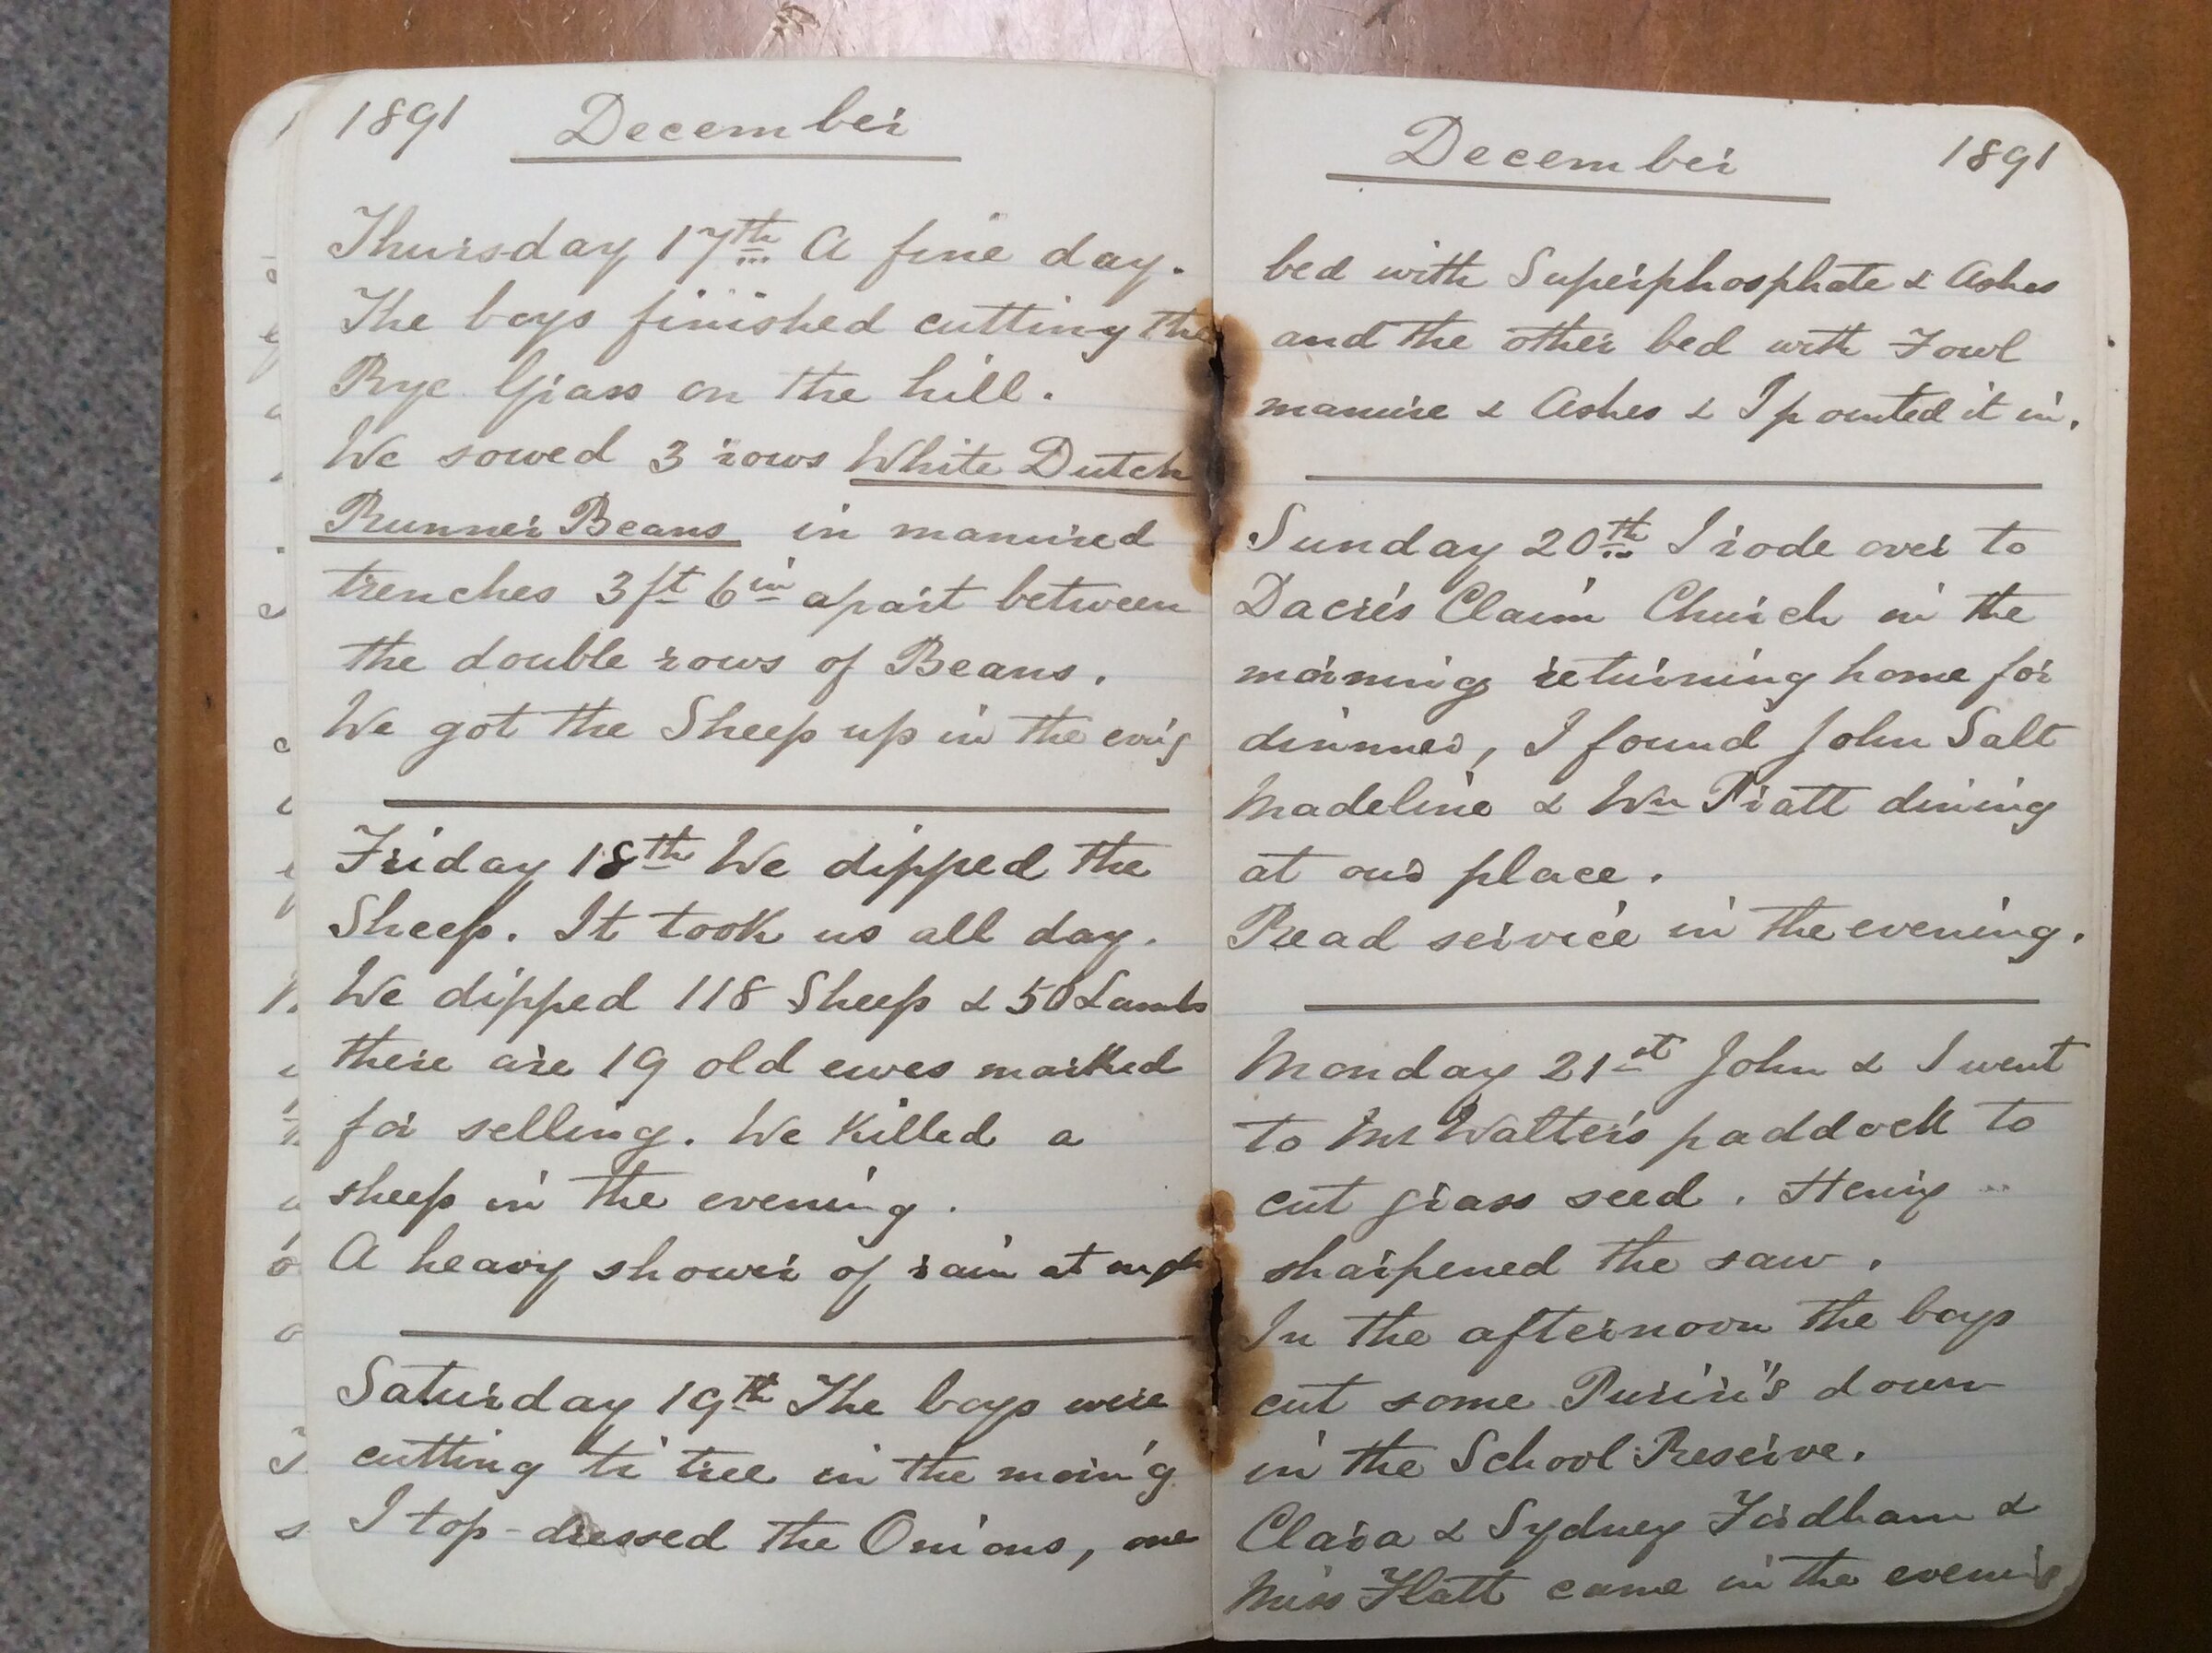 1891 December
Thursday 17th A fine day.
The boys finished cutting the
Rye Grass on the hill.
We sowed 3 rows White Dutch
Runner Beans in manured
trenches 3ft 6in apart between
the double rows of Beans.
We got the Sheep up in the ev'g
Friday 18th We dipped the
Sheep. It took us all day.
We dipped 118 Sheep & 50 Lambs
there are 19 old ewes marked
for selling. We Killed a
sheep in the evening.
A heavy shower of rain at
Saturday 19th The boys were
cutting ti tree in the morn'g
I top-dressed the Onions, one
December 1891
bed with Superphosphate & Ashes
and the other bed with Fowl
manure & Ashes & I pointed it in.
Sunday 20th I rode over to
Dacre's Claim Church in the
morning returning home for
dinner, I found John Salt
Madeline & Wm Pratt dining
at our place.
Read service in the evening.
Monday 21st John & I went
to Mr Walter's paddock to
cut grass seed. Henry
sharpened the saw.
In the afternoon the boys
cut some Puriri's down
in the School Reserve.
Clara & Sydney Fordham &
Miss Flatt came in the evening